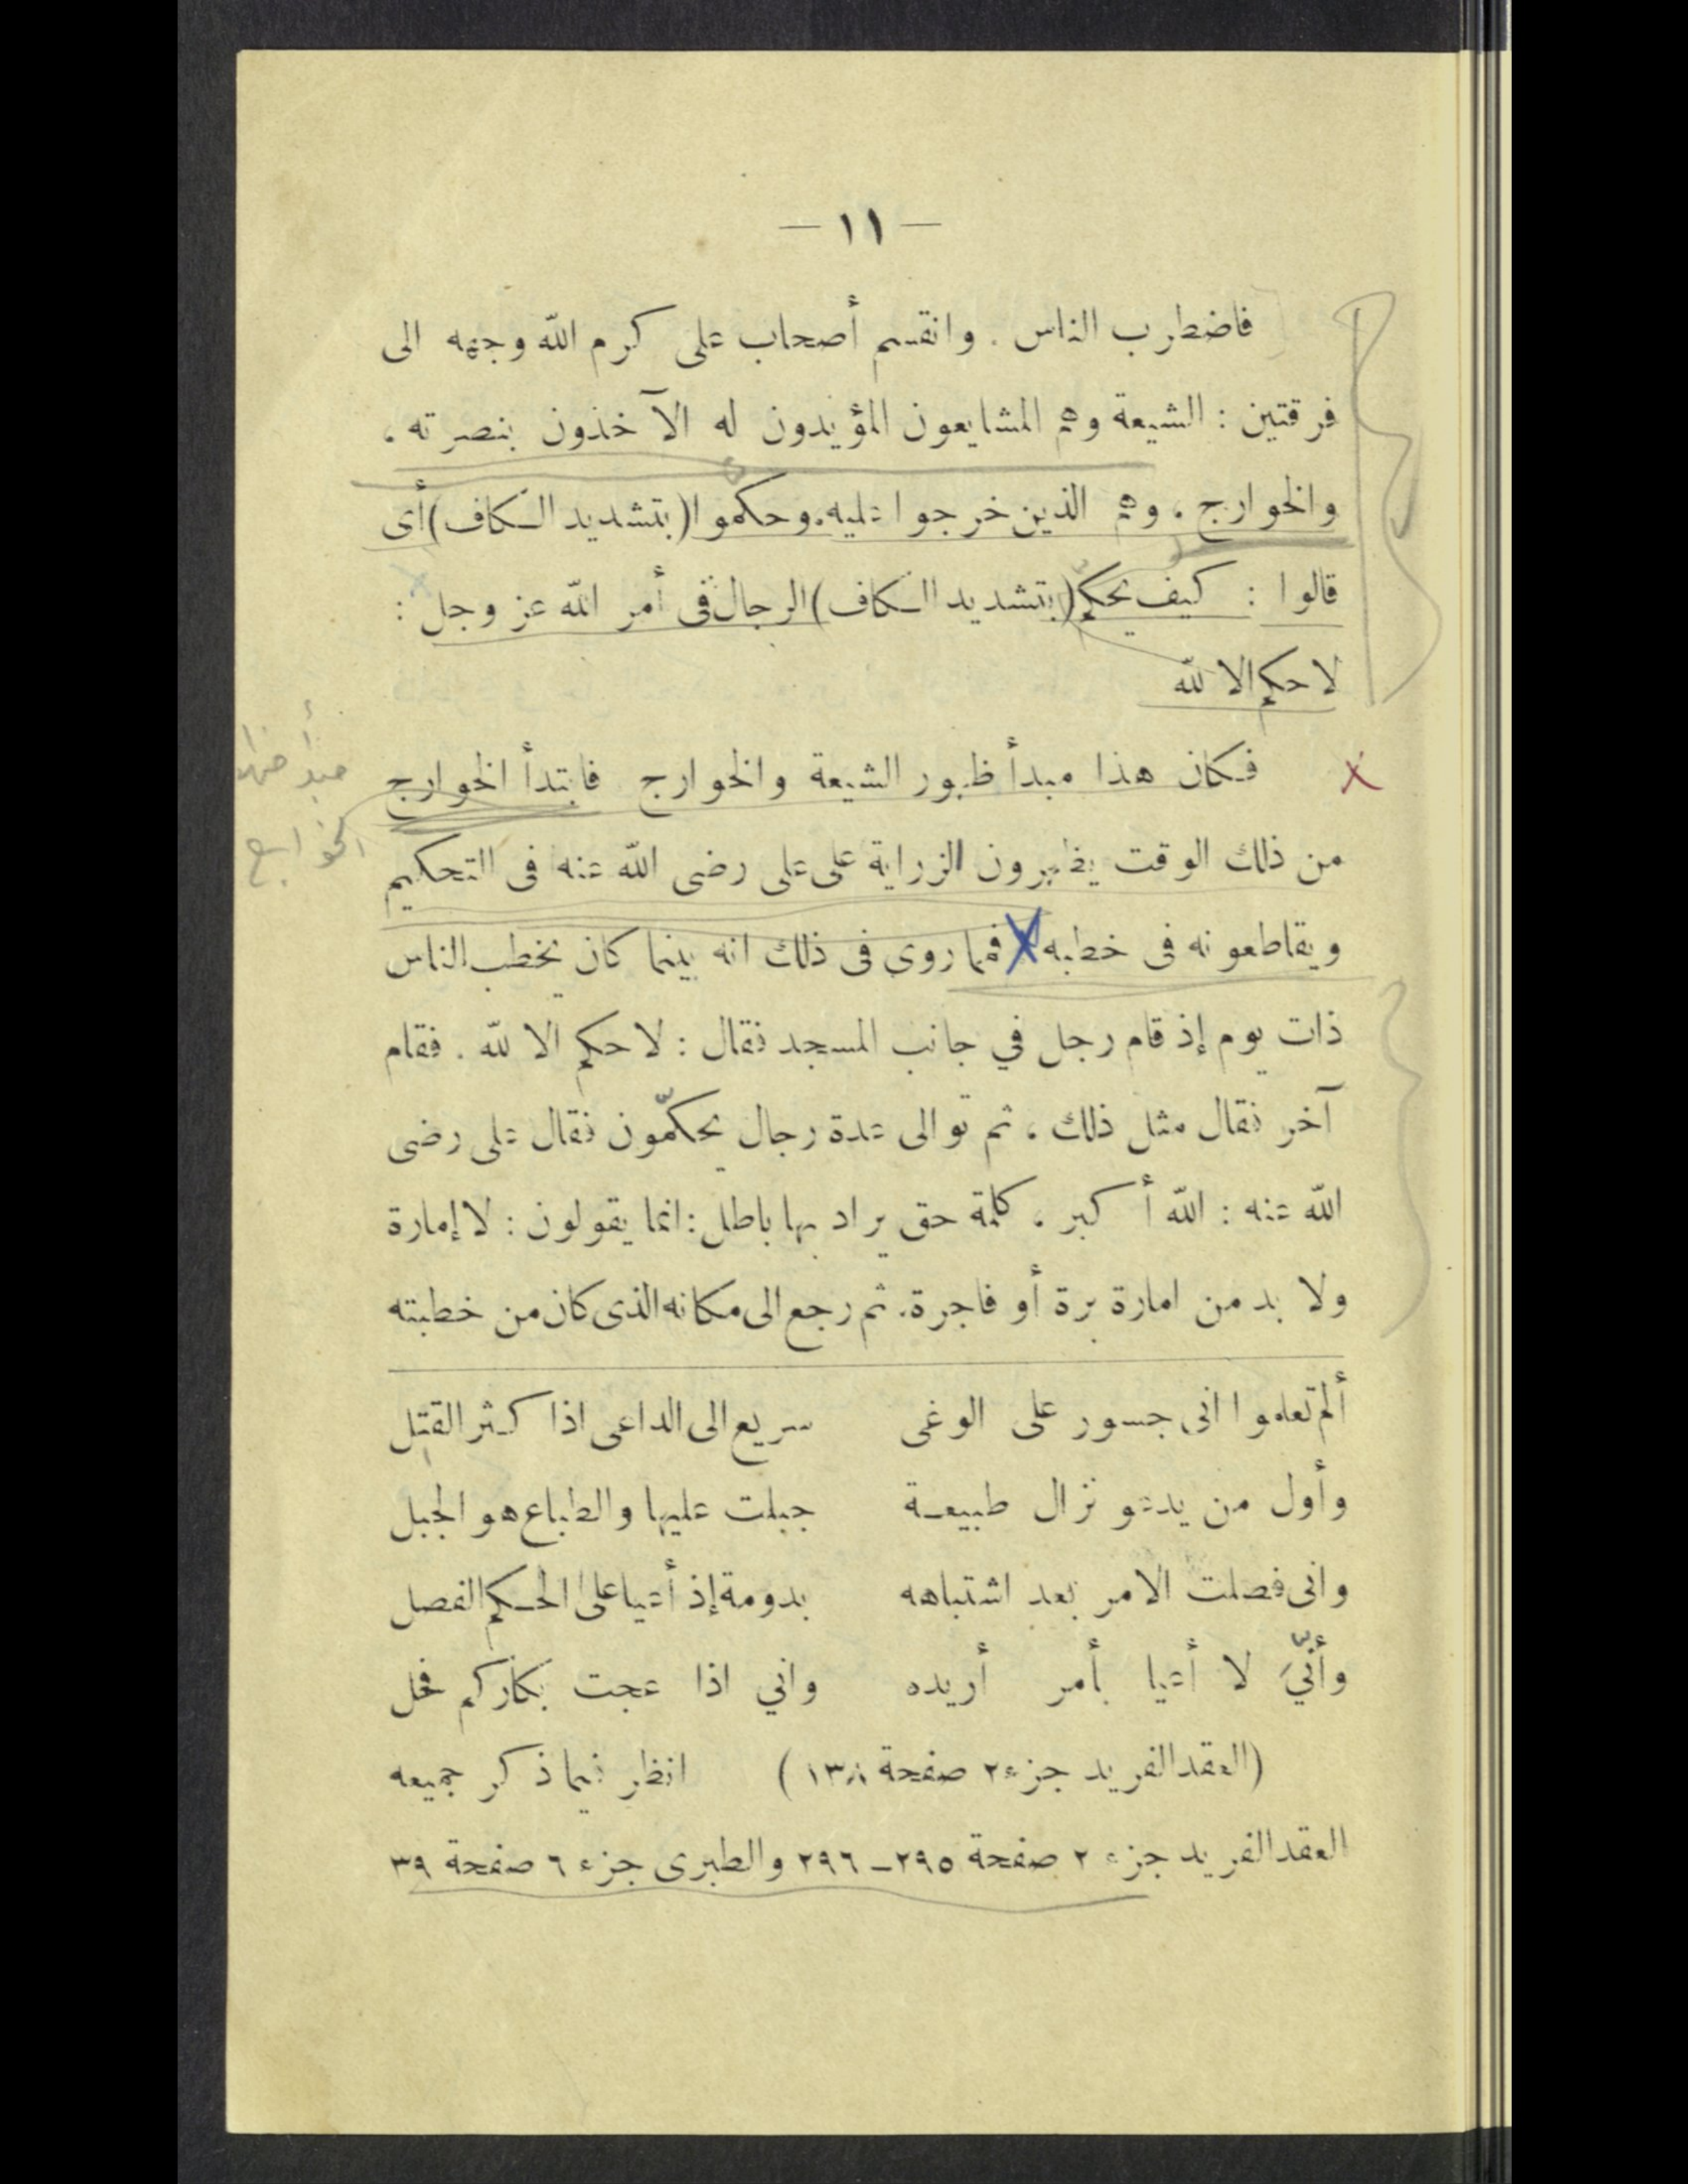 — ١١ —
فاضطرب الناس . وانقسم أصحاب على كرم الله وجهه الى
فرقتين : الشيعة وهم المشايعون المؤيدون له الآخذون بنصرته ،
والخوارج ، وهم الذين خرجوا عليه. وحكموا (بتشديد الكاف) أى
قالوا : كيف يحكم (بتشديد الكاف) الرجال فى أمر الله عز وجل :
لا حكم الا لله
فكان هذا مبدأ ظهور الشيعة والخوارج فابتدأ الخوارج
مبدأ
الخوارج
من ذلك الوقت يظهرون الزراية على على رضى الله عنه فى التحكيم
ويقاطعونه فى خطبه فمما روى فى ذلك انه بينما كان يخطب الناس
ذات يوم إذ قام رجل في جانب المسجد فقال : لا حكم الا لله . فقام
آخر فقال مثل ذلك ، ثم توالى عدة رجال يحكمّون فقال على رضى
الله عنه : الله أكبر ، كلمة حق يراد بها باطل : انما يقولون : لا إمارة
ولا بد من امارة برة أو فاجرة. ثم رجع الى مكانه الذى كان من خطبته
ألم تعلموا انى جسور على الوغى سريع الى الداعى اذا كثر القتل
وأول من يدعو نزال طبيعة جبلت عليها والطباع هو الجبل
وانى فصلت الامر بعد اشتباهه بدومة إذ أعيا على الحكم الفصل
وأنّيَ لا أعيا بأمر أريده واني اذا عجت بكاركم فحل
(العقد الفريد جزء ٢ صفحة ١٣٨) انظر فيما ذكر جميعه
العقد الفريد جزء ٢ صفحة ٢٩٥ــ٢٩٦ والطبرى جزء ٦ صفحة ٣٩